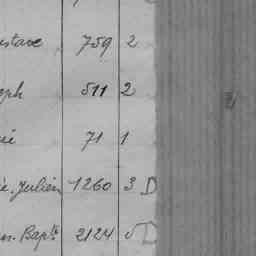 stave 759 2
eph 511 2
né 71 1
ie. Julien 1260 3 D
n. Bapte 2124 5 D